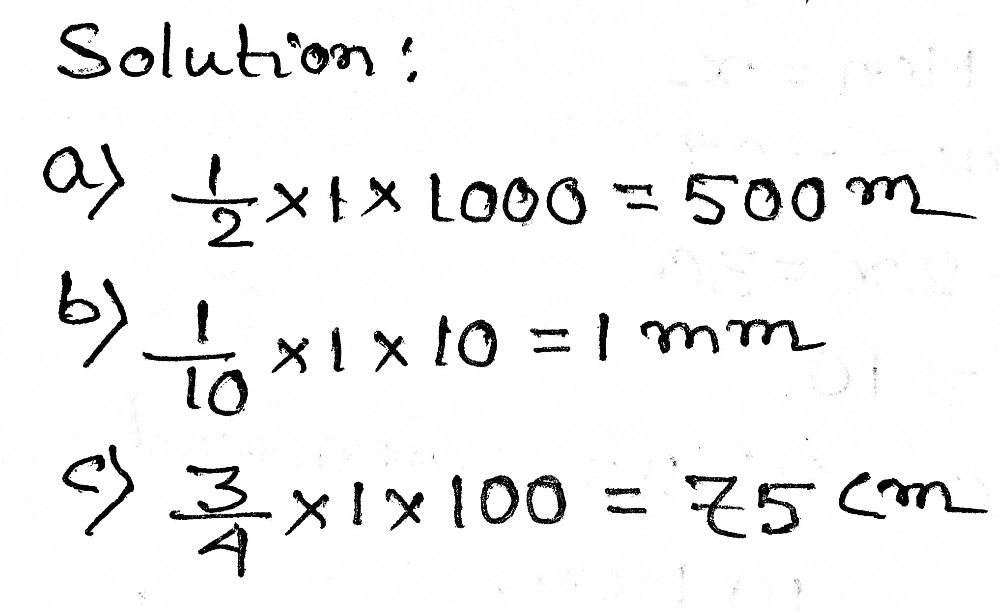 Solution:
a) 1/2 × 1 × 1000 = 500 m
b) 1/10 × 1 × 10 = 1 mm
c) 3/4 × 1 × 100 = 75 cm